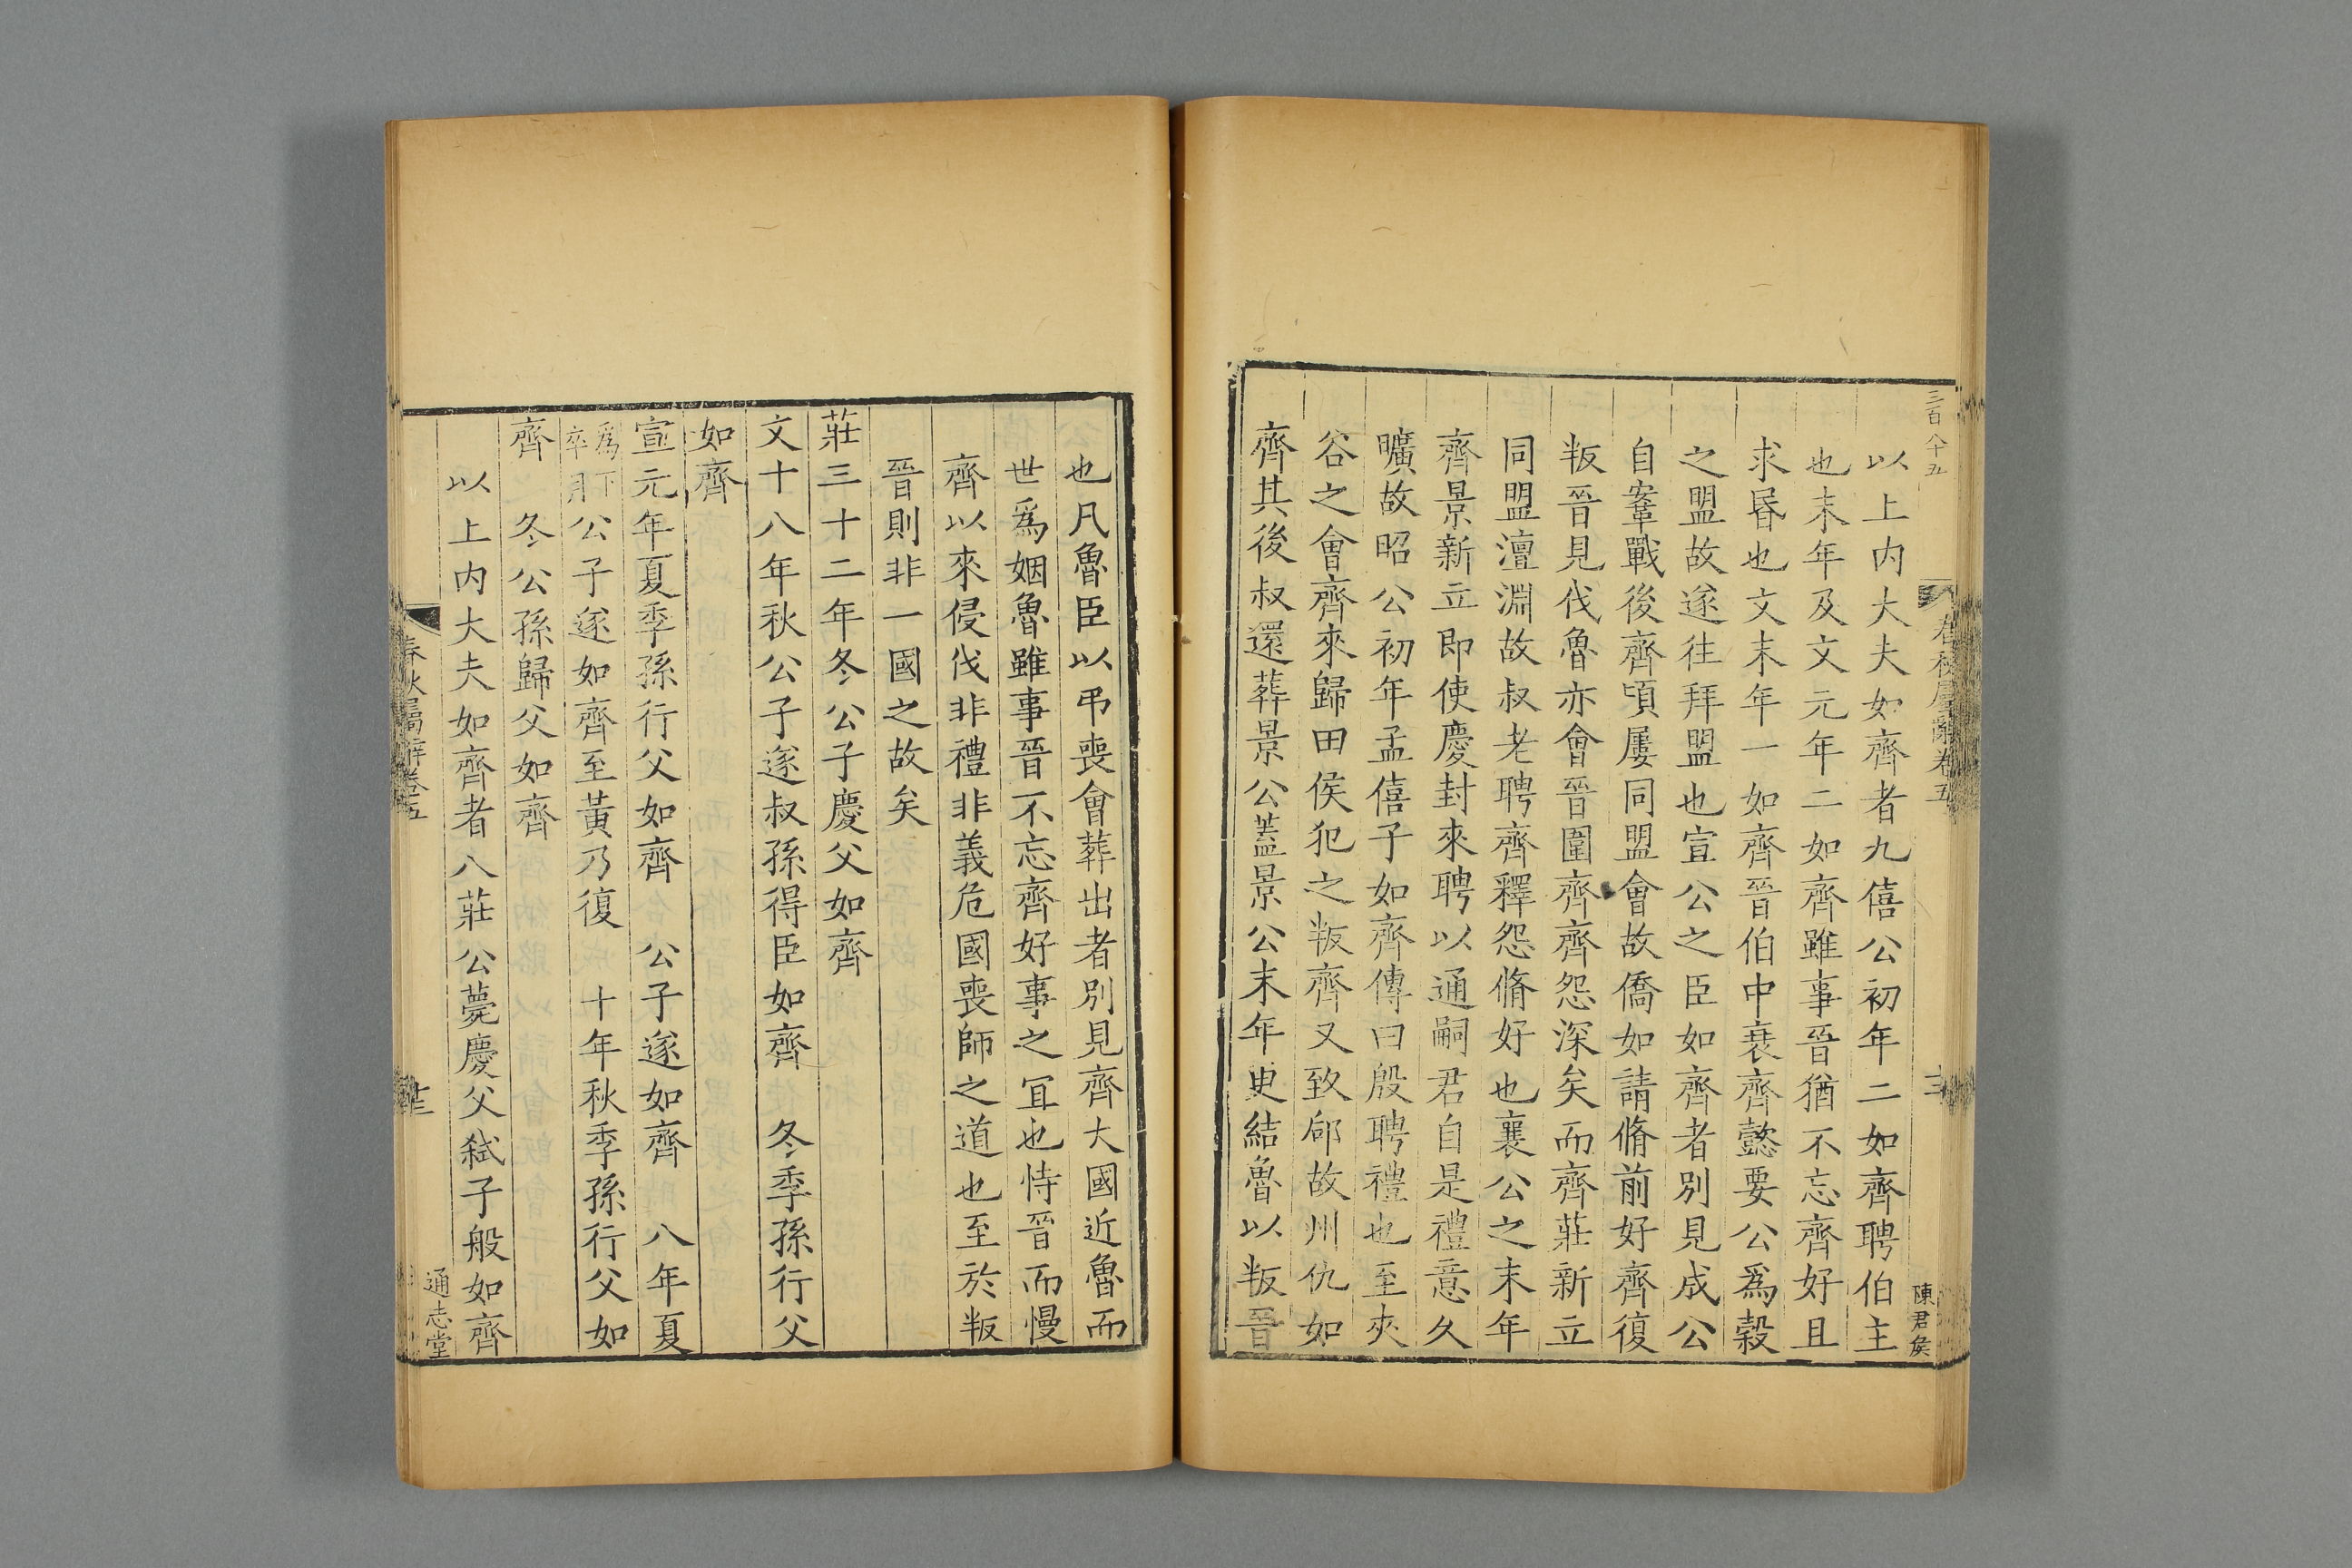 三百八十五
春秋屬辭卷五
陳君侯
以上内大夫如齊者九僖公初年二如齊聘伯主
也末年及文元年二如齊雖事晉猶不忘齊好且
求昏也文末年一如齊晉伯中衰齊懿要公爲穀
之盟故遂往拜盟也宣公之臣如齊者別見成公
自鞌戰後齊頃屢同盟會故僑如請脩前好齊復
叛晉見伐魯亦會晉圍齊齊怨深矣而齊莊新立
同盟澶淵故叔老聘齊釋怨脩好也襄公之末年
齊景新立即使慶封來聘以通嗣君自是禮意久
曠故昭公初年孟僖子如齊傳曰殷聘禮也至夾
谷之會齊來歸田侯犯之叛齊又致郈故州仇如
齊其後叔還葬景公蓋景公末年叓結魯以叛晉
也凡魯臣以弔喪會葬出者別見齊大國近魯而
世爲姻魯雖事晉不忘齊好事之宜也恃晉而慢
齊以來侵伐非禮非義危國喪師之道也至於叛
晉則非一國之故矣
莊三十二年冬公子慶父如齊
文十八年秋公子遂叔孫得臣如齊　冬季孫行父
如齊
宣元年夏季孫行父如齊　公子遂如齊　八年夏
爲下
卒月
公子遂如齊至黃乃復　十年秋季孫行父如
齊　冬公孫歸父如齊
以上内大夫如齊者八莊公薨慶父弑子般如齊
春秋屬辭卷五
通志堂